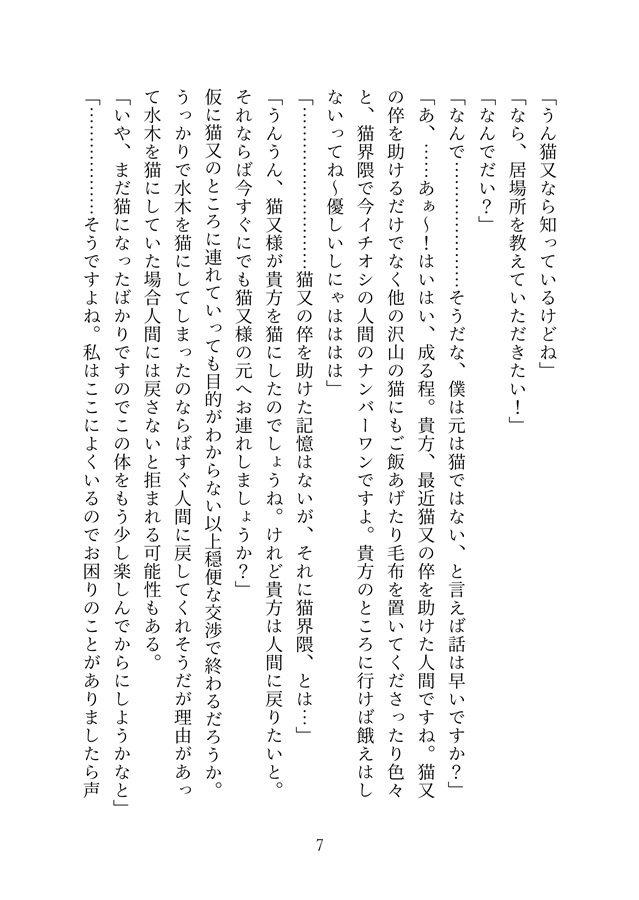 「うん猫又なら知っているけどね」
「なら、居場所を教えていただきたい！」
「なんでだい？」
「なんで………………そうだな、僕は元は猫ではない、と言えば話は早いですか？」
「あ、……あぁ〜！はいはい、成る程。貴方、最近猫又の倅を助けた人間ですね。猫又
の倅を助けるだけでなく他の沢山の猫にもご飯あげたり毛布を置いてくださったり色々
と、猫界隈で今イチオシの人間のナンバーワンですよ。貴方のところに行けば餓えはし
ないってね〜優しいしにゃはははは」
「………………………猫又の倅を助けた記憶はないが、それに猫界隈、とは…」
「うんうん、猫又様が貴方を猫にしたのでしょうね。けれど貴方は人間に戻りたいと。
それならば今すぐにでも猫又様の元へお連れしましょうか？」
仮に猫又のところに連れていっても目的がわからない以上穏便な交渉で終わるだろうか。
うっかりで水木を猫にしてしまったのならばすぐ人間に戻してくれそうだが理由があっ
て水木を猫にしていた場合人間には戻さないと拒まれる可能性もある。
「いや、まだ猫になったばかりですのでこの体をもう少し楽しんでからにしようかなと」
「………………そうですよね。私はここによくいるのでお困りのことがありましたら声
7